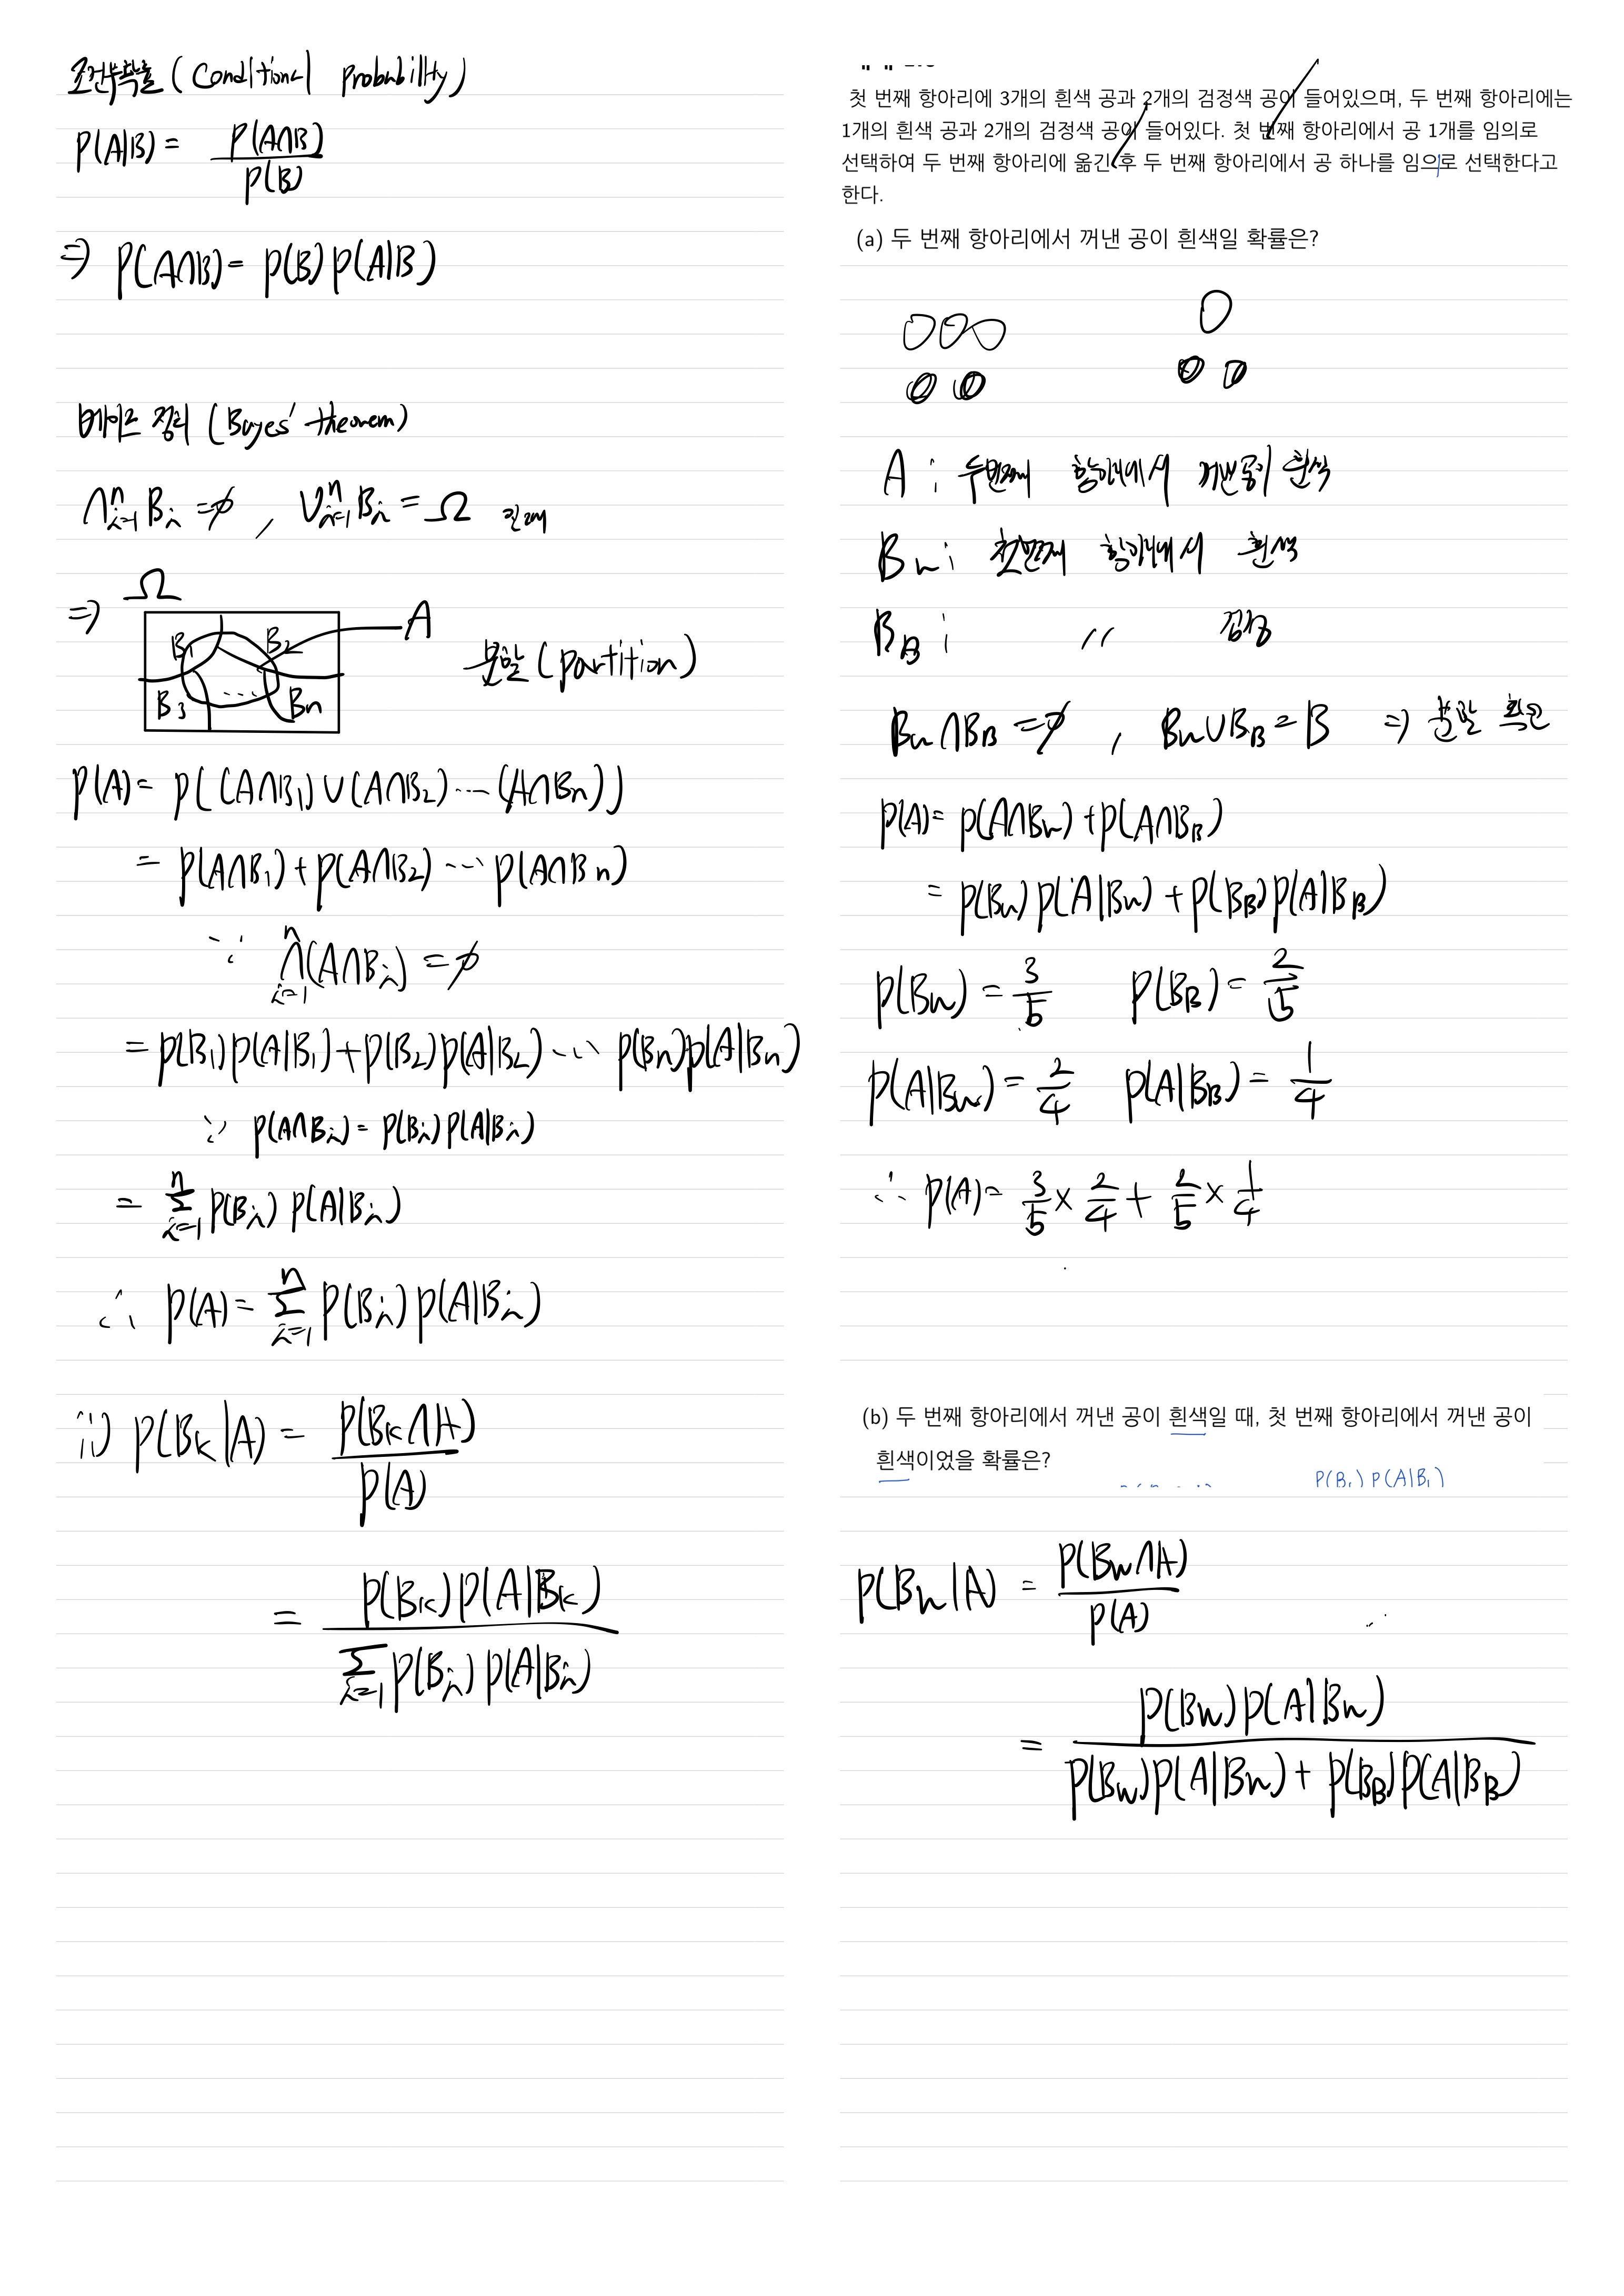 조건부확률 (Conditional probability)
P(A|B) = P(A∩B) / P(B)
⇒ P(A∩B) = P(B) P(A|B)
베이즈 정리 (Bayes' theorem)
∩ⁿᵢ₌₁ Bᵢ = ∅ , ∪ⁿᵢ₌₁ Bᵢ = Ω
⇒ Ω
A
B₁ B₂
B₃ ... Bn
분할 (partition)
P(A) = P((A∩B₁)∪(A∩B₂)····(A∩Bn))
= P(A∩B₁)+P(A∩B₂)····P(A∩Bn)
∵ ∩ⁿᵢ₌₁(A∩Bᵢ) = ∅
= P(B₁)P(A|B₁)+P(B₂)P(A|B₂)···· P(Bn)P(A|Bn)
∵ P(A∩Bᵢ) = P(Bᵢ)P(A|Bᵢ)
= Σⁿᵢ₌₁ P(Bᵢ) P(A|Bᵢ)
∴ P(A) = Σⁿᵢ₌₁ P(Bᵢ) P(A|Bᵢ)
ii) P(Bk|A) = P(Bk∩A) / P(A)
= P(Bk)P(A|Bk) / Σᵢ₌₁ P(Bᵢ)P(A|Bᵢ)
첫 번째 항아리에 3개의 흰색 공과 2개의 검정색 공이 들어있으며, 두 번째 항아리에는
1개의 흰색 공과 2개의 검정색 공이 들어있다. 첫 번째 항아리에서 공 1개를 임의로
선택하여 두 번째 항아리에 옮긴 후 두 번째 항아리에서 공 하나를 임으로 선택한다고
한다.
(a) 두 번째 항아리에서 꺼낸 공이 흰색일 확률은?
A : 두번째 항아리에서 꺼낸공이 흰색
Bw : 첫번째 항아리에서 흰색
BB : 〃 검정
Bw∩BB = ∅ , Bw∪BB = B ⇒ 분할 확인
P(A) = P(A∩Bw)+P(A∩BB)
= P(Bw)P(A|Bw) + P(BB)P(A|BB)
P(Bw) = 3/5 P(BB) = 2/5
P(A|Bw) = 2/4 P(A|BB) = 1/4
∴ P(A) = 3/5 × 2/4 + 2/5 × 1/4
(b) 두 번째 항아리에서 꺼낸 공이 흰색일 때, 첫 번째 항아리에서 꺼낸 공이
흰색이었을 확률은?
P(B₁) P(A|B₁)
P(Bw|A) = P(Bw∩A) / P(A)
= P(Bw)P(A|Bw) / P(Bw)P(A|Bw) + P(BB)P(A|BB)